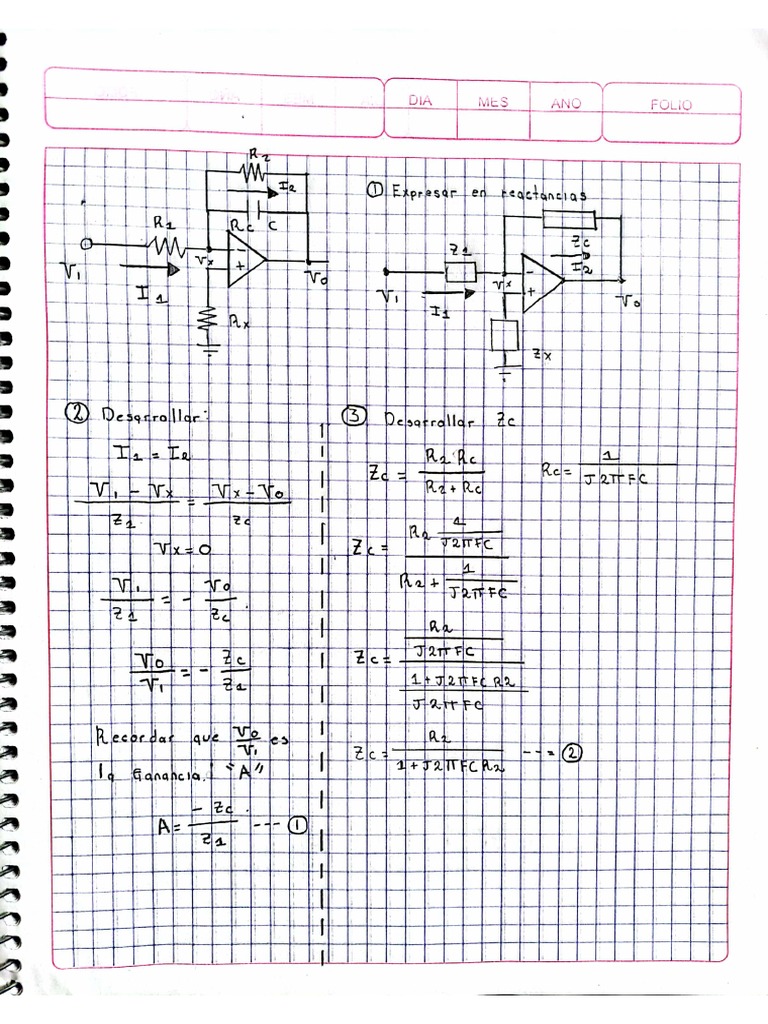 DIA MES ANO FOLIO
R2
I2
R1
Rc C
Vx - +
V1
I1
Vo
Rx
① Expresar en reactancias
Zc
I2
Z1
Vx - +
V1
I1
Vo
Zx
② Desarrollar:
I1 = I2
(V1 - Vx)/Z1 = (Vx - Vo)/Zc
Vx = 0
V1/Z1 = - Vo/Zc
Vo/V1 = - Zc/Z1
Recordar que Vo/V1 es
la Ganancia. "A"
A = - Zc/Z1 --- ①
③ Desarrollar Zc
Zc = (R2·Rc)/(R2 + Rc) Rc = 1/(J2πFC)
Zc = (R2 1/(J2πFC))/(R2 + 1/(J2πFC))
Zc = (R2/(J2πFC))/((1+J2πFCR2)/(J2πFC))
Zc = R2/(1+J2πFCR2) --- ②